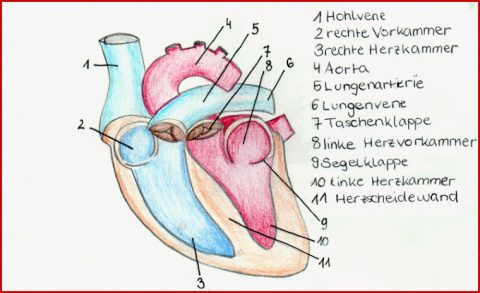 1 Hohlvene
2 rechte Vorkammer
3 rechte Herzkammer
4 Aorta
5 Lungenartierie
6 Lungenvene
7 Taschenklappe
8 linke Herzvorkammer
9 Segelklappe
10 linke Herzkammer
11 Herzscheidewand
4
5
7
8
6
1
2
9
10
11
3